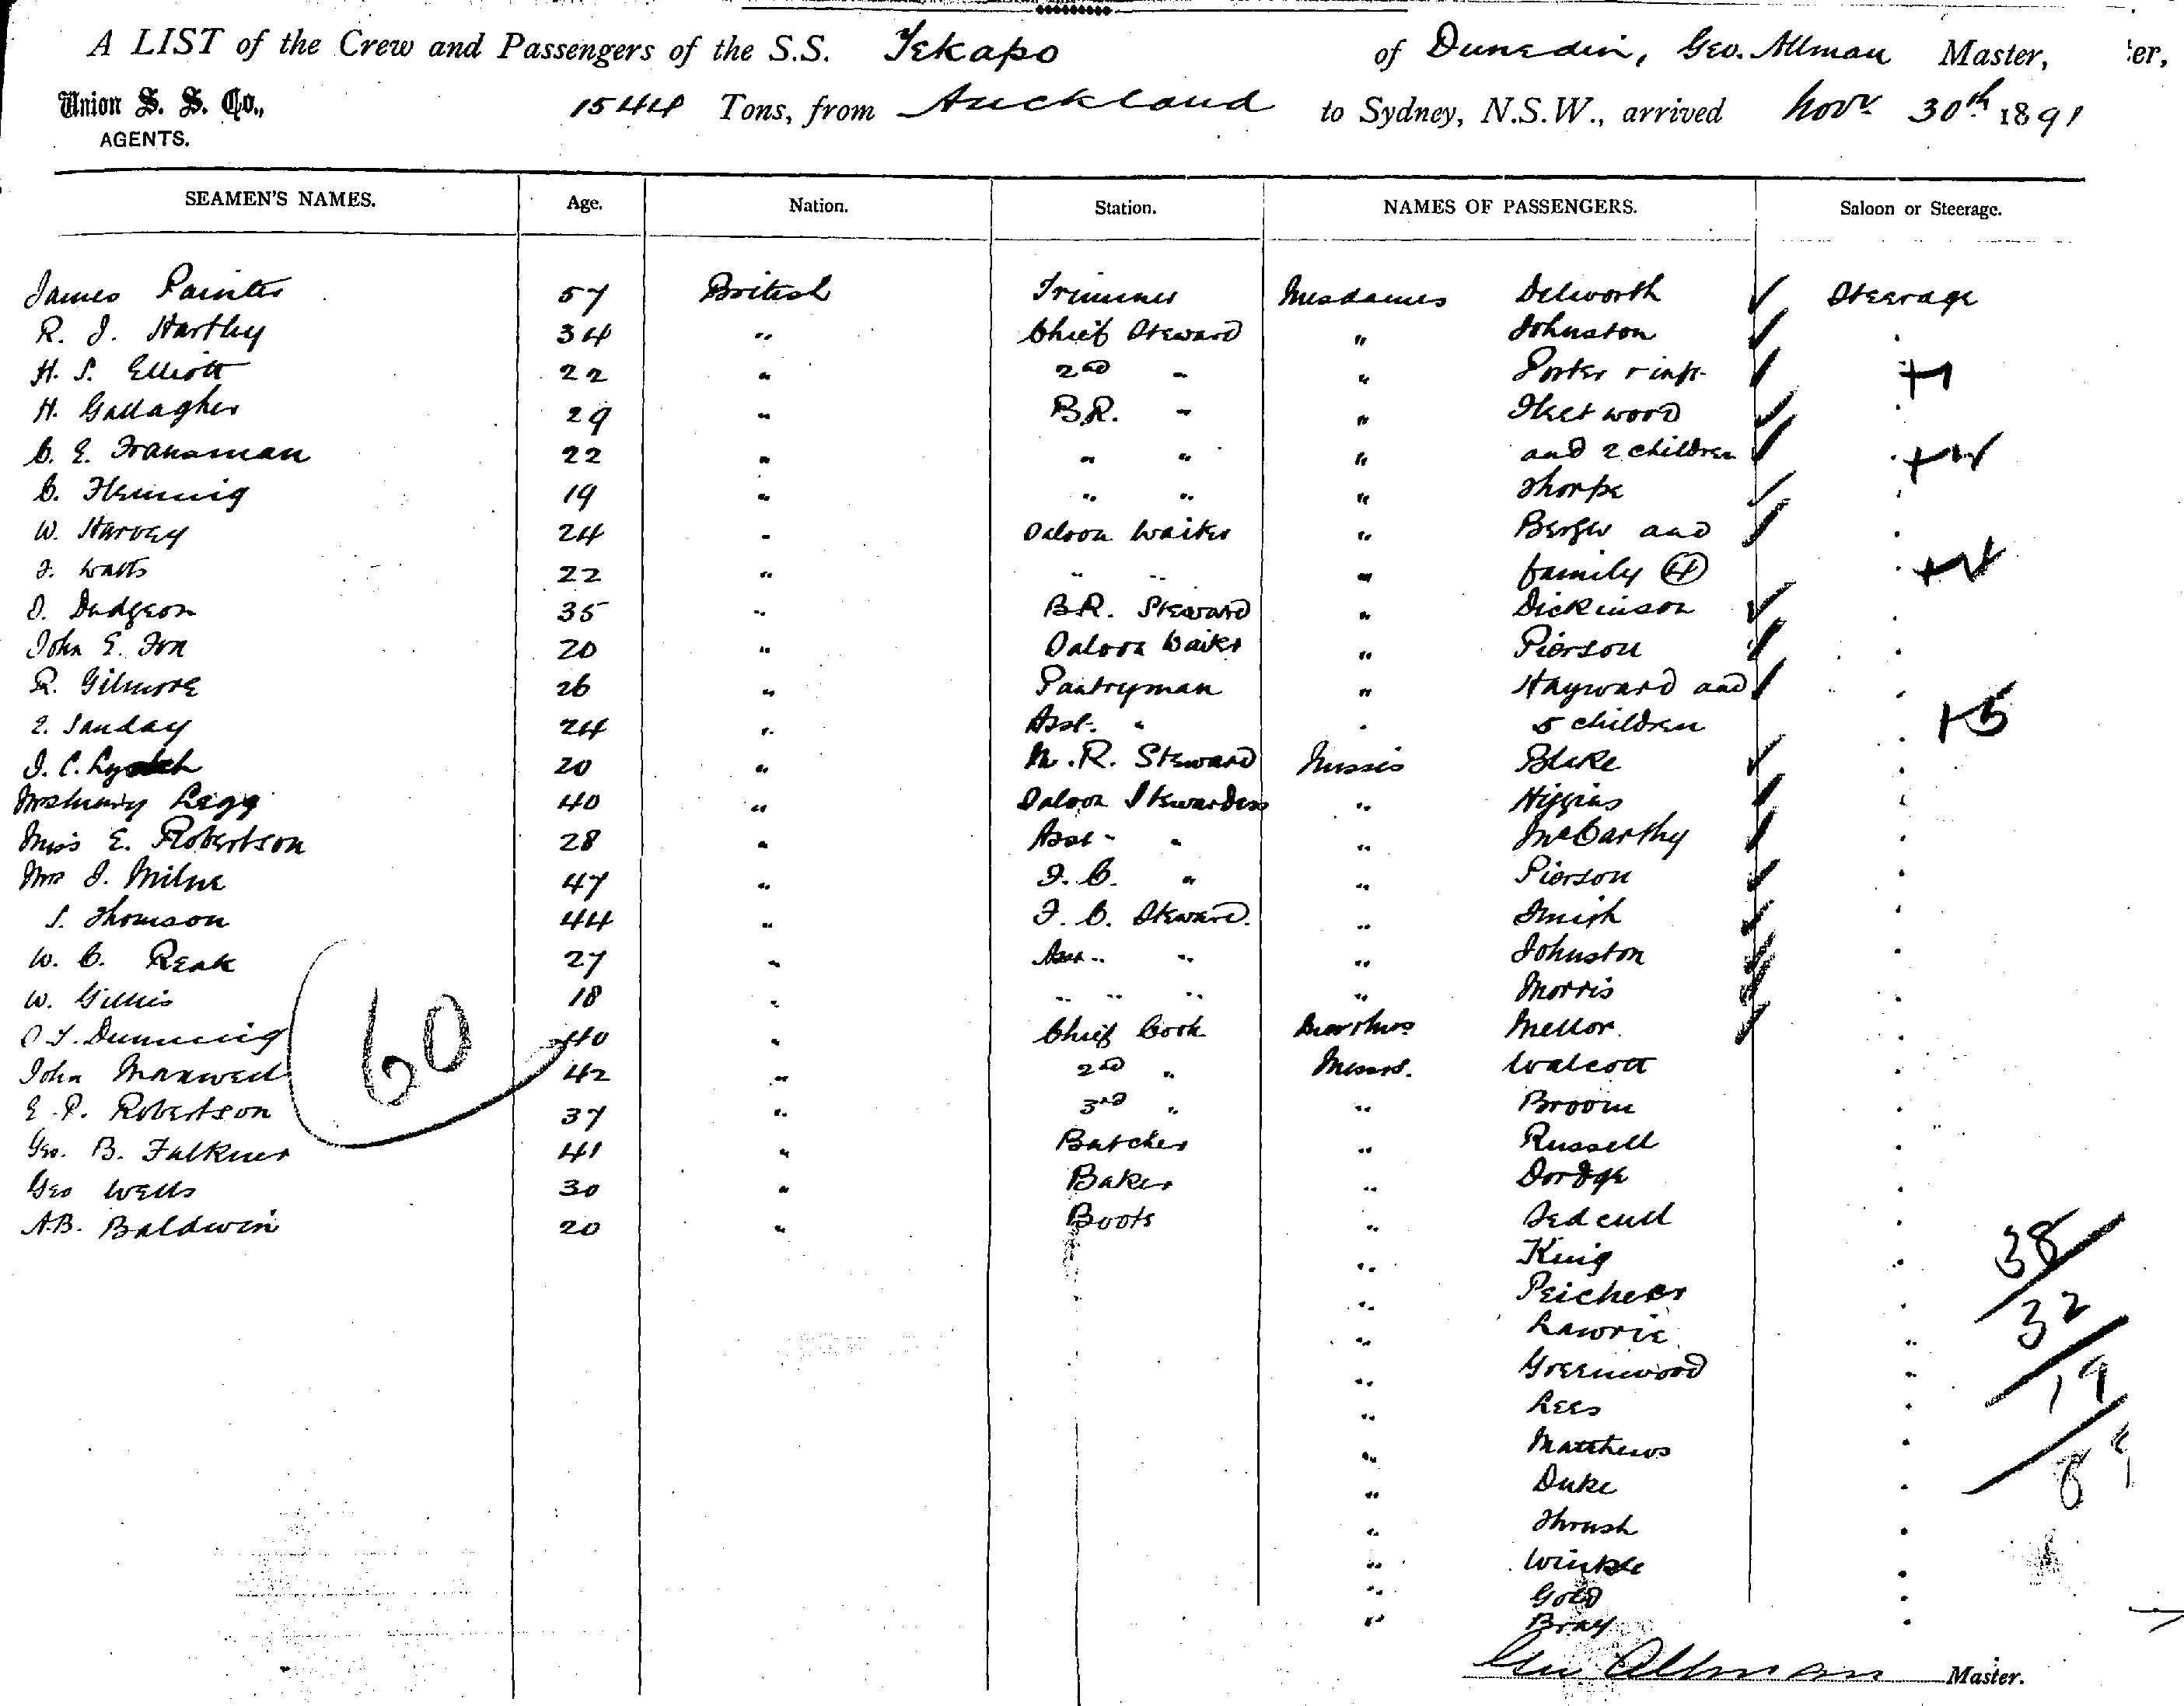 A LIST of the Crew and Passengers of the S.S. Tekapo of Dunedin, Geo. Allman Master,
Union S. S. Co., 1544 Tons, from Auckland to Sydney, N.S.W., arrived Novr 30th 1891
AGENTS.
SEAMEN'S NAMES. Age. Nation. Station. NAMES OF PASSENGERS. Saloon or Steerage.
James Painter 57 British Trimmer Mesdames Delworth ✓ Steerage
R. J. Hartley 34 " Chief Steward " Johnston ✓ "
H. S. Elliott 22 " 2nd " " Porter + inft. +1
H. Gallagher 29 " B.R. " " wood ✓ "
C. E. Fransman 22 " " " " and 2 children
C. Fleming 19 " " " " Thorpe ✓
W. Harvey 24 " Saloon Waiter " and
F. Watts 22 " " " " family (4)
J. Dudgeon 35 " B.R. Steward " Dickinson ✓ "
John E. Fox 20 " Saloon Waiter " Pierson "
R. Gilmore 26 " Pantryman " Hayward and "
E. Sanday 24 " Asst. " " 5 children " +5
J. C. 20 " M.R. Steward Misses Blake ✓ "
Legg 40 " Saloon Stewardess " Higgins "
Miss E. Robertson 28 " Asst " " McCarthy "
Mrs J. Milne 47 " F.C. " " Pierson "
S. Thomson 44 " F.C. Steward " Smith "
W. C. Reak 27 " Asst " " Johnston "
W. Gillies 18 " " " " Morris "
Dunning 40 " Chief Cook Mellor "
John Maxwell 42 " 2nd " Messrs. Walcott "
E. P. Robertson 37 " 3rd " " Broom "
60
Geo. B. Falkner 41 " Butcher " Russell "
Geo Wells 30 " Baker " Dordge "
A.B. Baldwin 20 " Boots " "
" King " 38
" "
" Lawrie " 32
" Greenwood " 19
" Lees "
" Matthews " 89
" Duke "
" Thrush "
" Winkle "
" Gold "
" Bray "
Geo Allman Master.